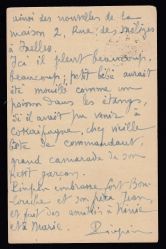 ainsi des nouvelles de la
maison 2, Rue des
à Ixelles.
Ici il pleut beaucoup,
beaucoup, petit bébé aurait
été mouillé comme un
poisson dans les étangs,
Si il avait pu venir à
chez vieille
bote de commandant,
grand camarade de son
petit garçon.
embrasse fort Bon
et son petit Jean
et fait des amitiés à
et à Marie.